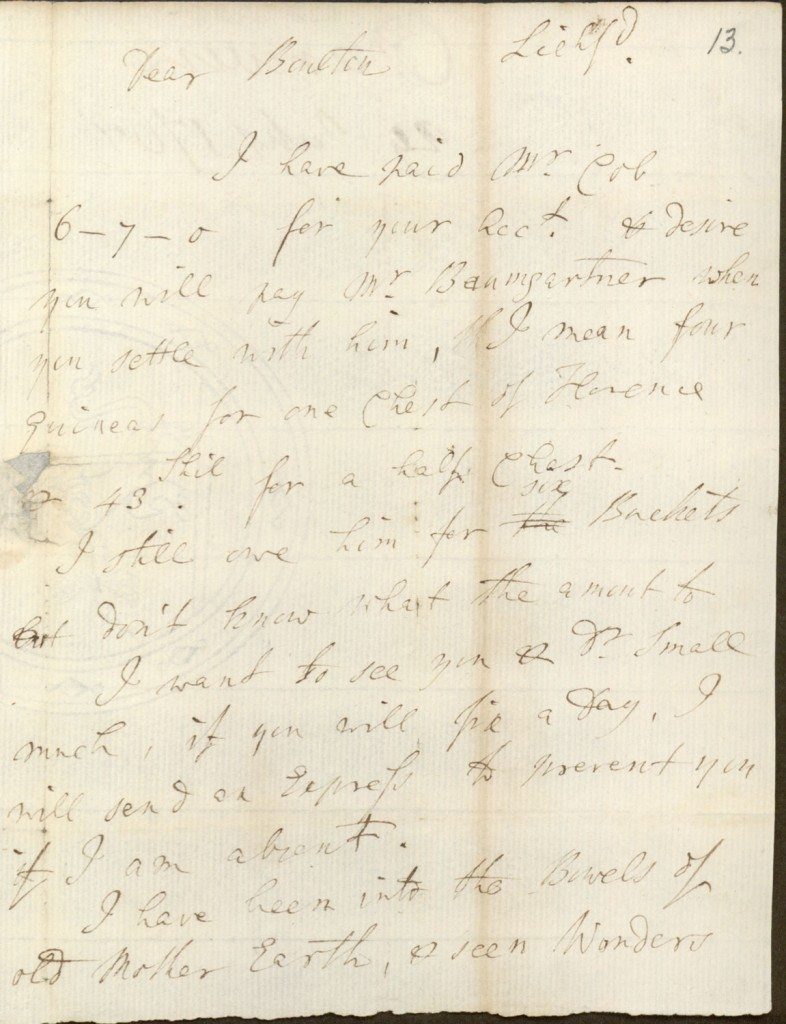 13.
Dear Boulton Lichfd.
I have paid Mr. Cob
6-7-0 for your Acct. & desire
you will pay Mr. Baumgartner when
you settle with him, I mean four
guineas for one Chest of Florence
& 43 Shil. for a half Chest.
I still owe him for six Buckets
but don't know what the amout to
I want to see you & Dr. Small
much, if you will fix a Day, I
will send an Express to prevent you
if I am absent.
I have been into the Bowels of
old Mother Earth, & seen Wonders